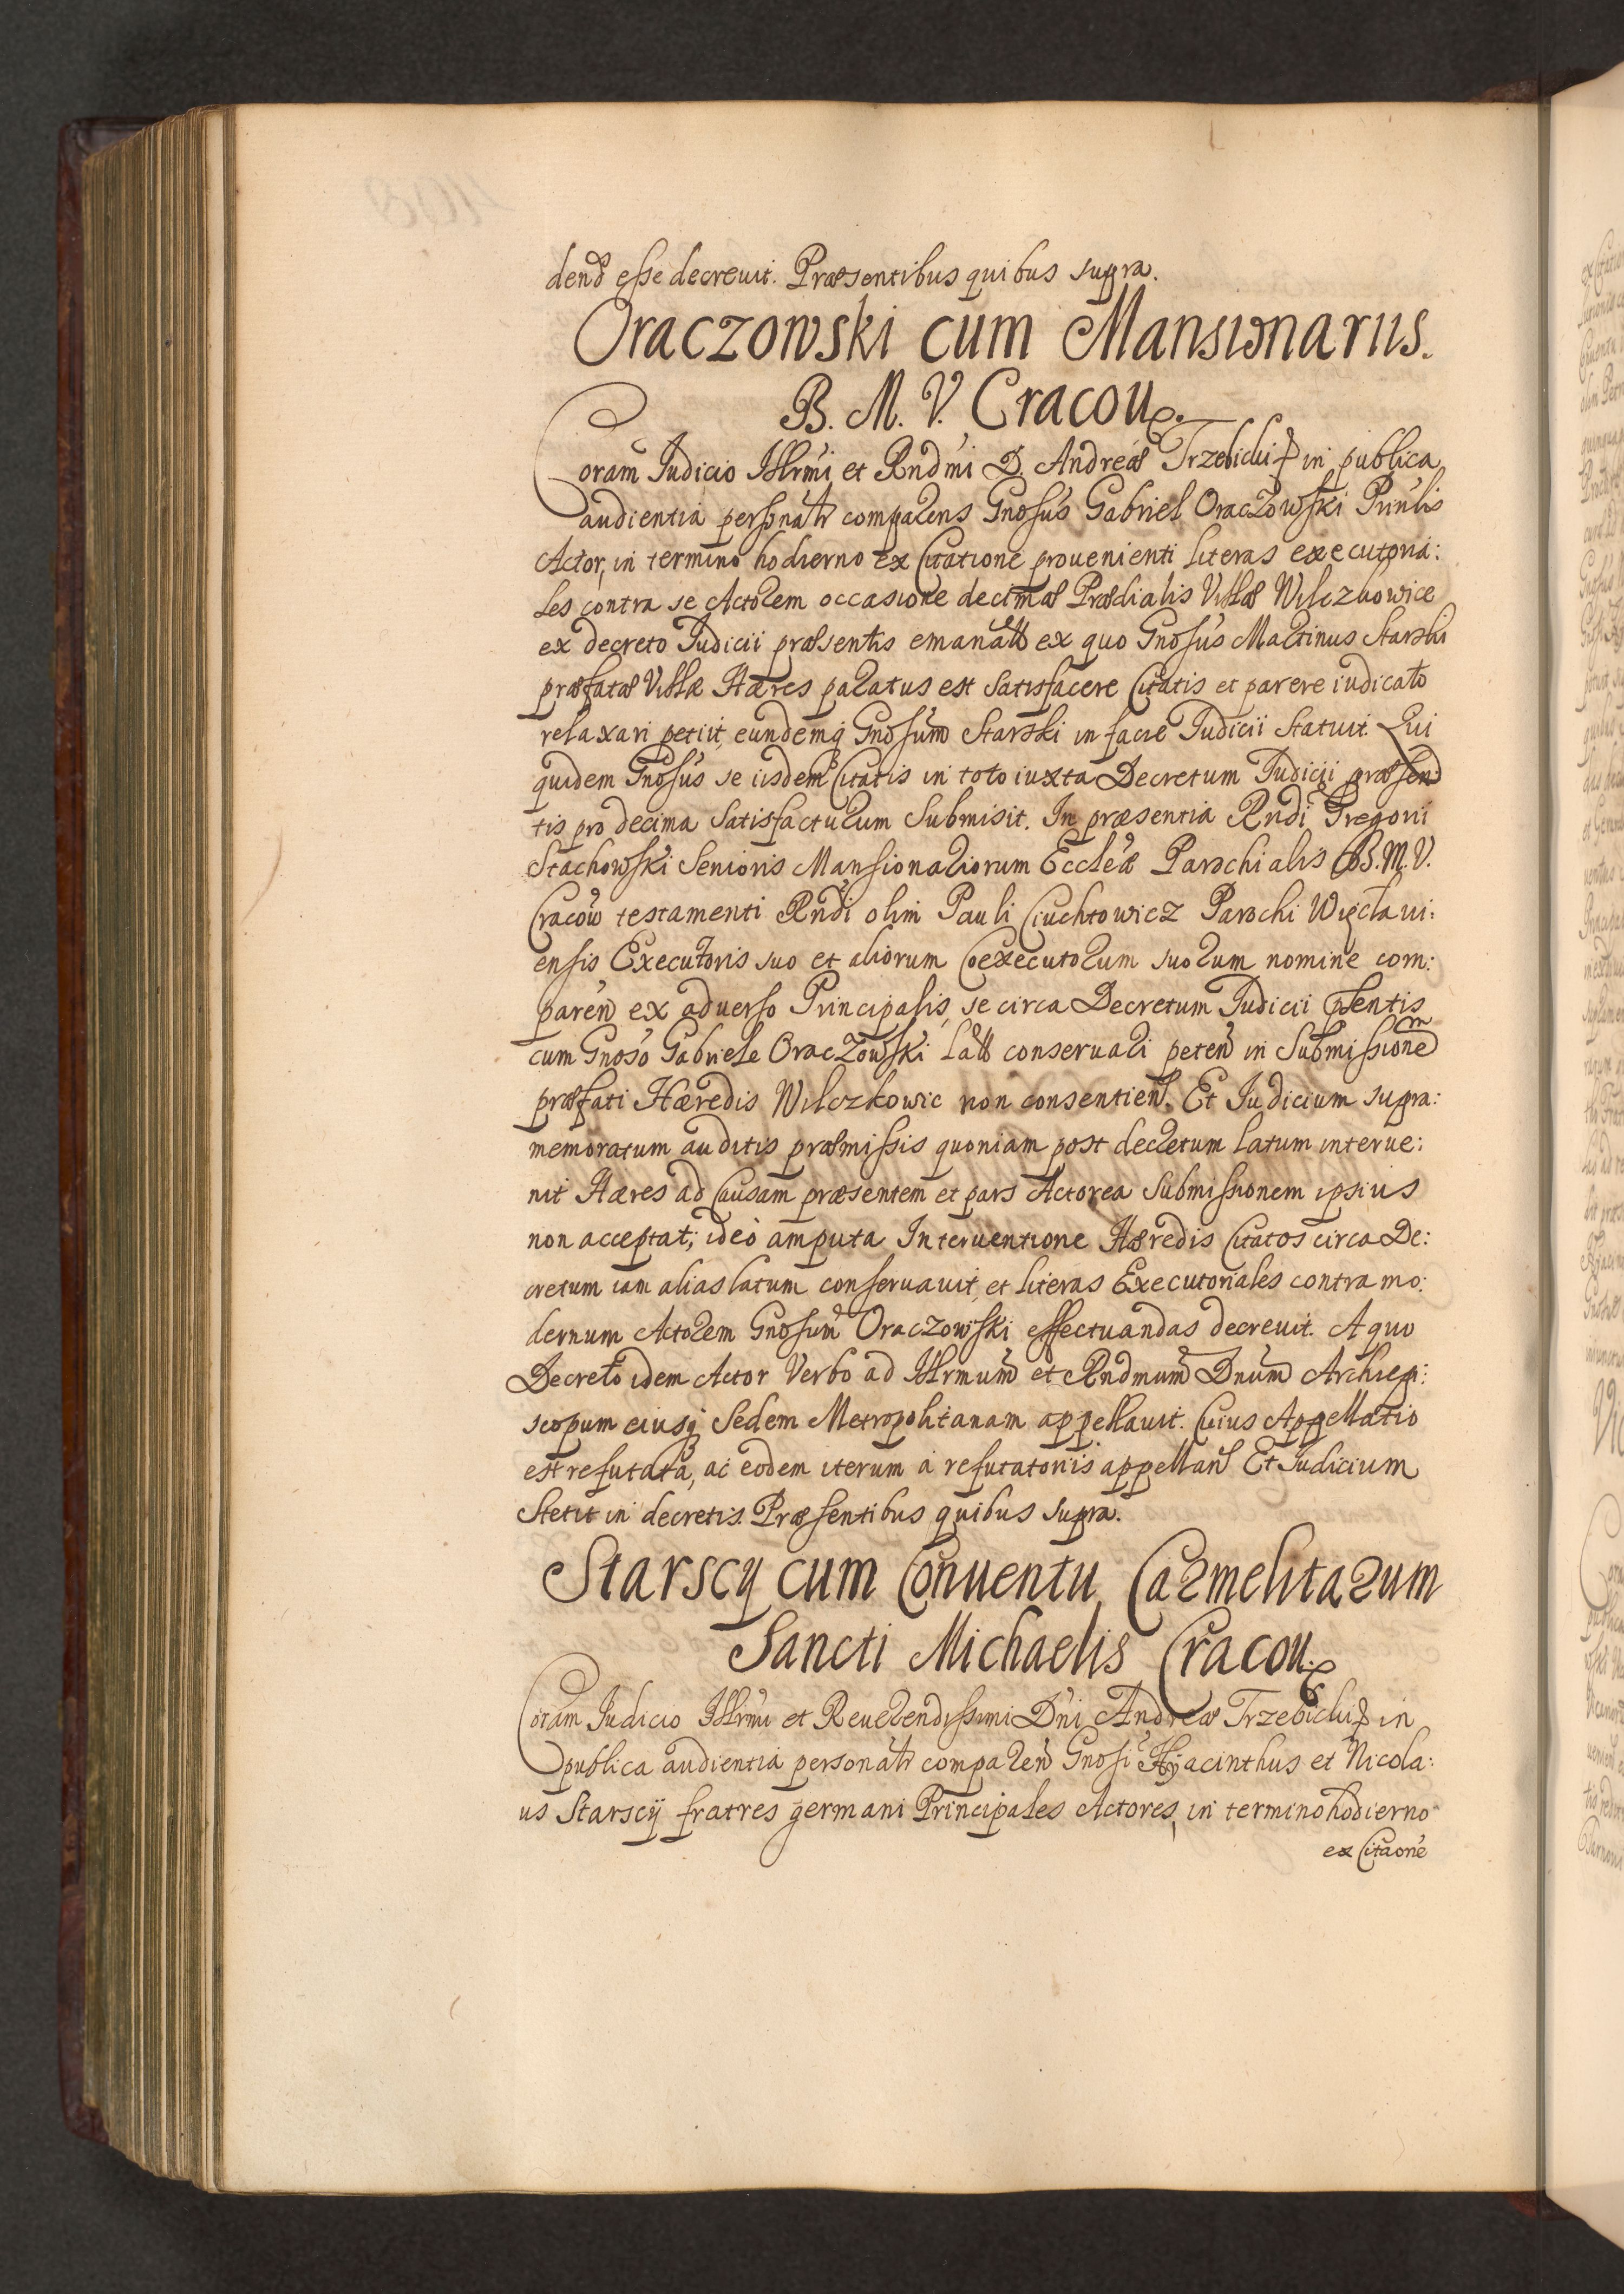 dend esse decreuit. Præsentibus quibus supra.
Oraczowski cum Mansionariis.
B. M. V. Cracouę.
Coram Judicio Illrmi et Rndmi D. Andreæ Trzebicki in publica
audientia personaltr comparens Gnosus Gabriel Oraczowski Prinlis
Actor, in termino hodierno ex Citatione prouenienti literas executoria:
les contra se Actorem occasione decimæ Prædialis Villæ Wilczkowice
ex decreto Judicii præsentis emanatas ex quo Gnosus Martinus Starski
præfatæ Villæ Hæres paratus est satisfacere Citatis et parere iudicato
relaxari petiit, eundemq Gnosum Starski in facie Judicii Statuit. Qui
quidem Gnosus se iisdem Citatis in toto iuxta Decretum Judicii præsen
tis pro decima Satisfacturum Submisit. In præsentia Rndi Gregorii
Stachowski Senioris Mansionariorum Ecclæ Parochialis B. M. V.
Cracow testamenti Rndi olim Pauli Ciuchtowicz Parochi Więclaui:
ensis Executoris suo et aliorum Coexecutorum suorum nomine com:
paren ex aduerso Principalis, se circa Decretum Judicii psentis
cum Gnoso Gabriele Oraczowski latt conseruari peten in Submissionem
præfati Hæredis Wilczkowic non consentien. Et Judicium supra:
memoratum auditis præmissis quoniam post decretum latum interue:
nit Hæres ad Causam præsentem et pars Actorea Submissionem ipsius
non acceptat; ideò amputa Interuentione Hæredis Citatos circa De:
cretum iam alias latum conseruauit, et literas Executoriales contra mo:
dernum Actorem Gnosum Oraczowski effectuandas decreuit. A quo
Decreto idem Actor Verbo ad Illrmum et Rndmum Dnum Archiepi:
scopum eiusq Sedem Metropolitanam appellauit. Cuius Appellatio
est refutata, ac eodem iterum à refutatoriis appellan Et Judicium
Stetit in decretis. Præsentibus quibus supra.
Starscy cum Conuentu Carmelitarum
Sancti Michaelis Cracouę
Coram Judicio Illrmi et Reuerendissimi Dni Andreæ Trzebicki in
publica audientia personaltr comparen Gnosi Hyacinthus et Nicola:
us Starscy fratres germani Principales Actores, in termino hodierno
ex Citaone